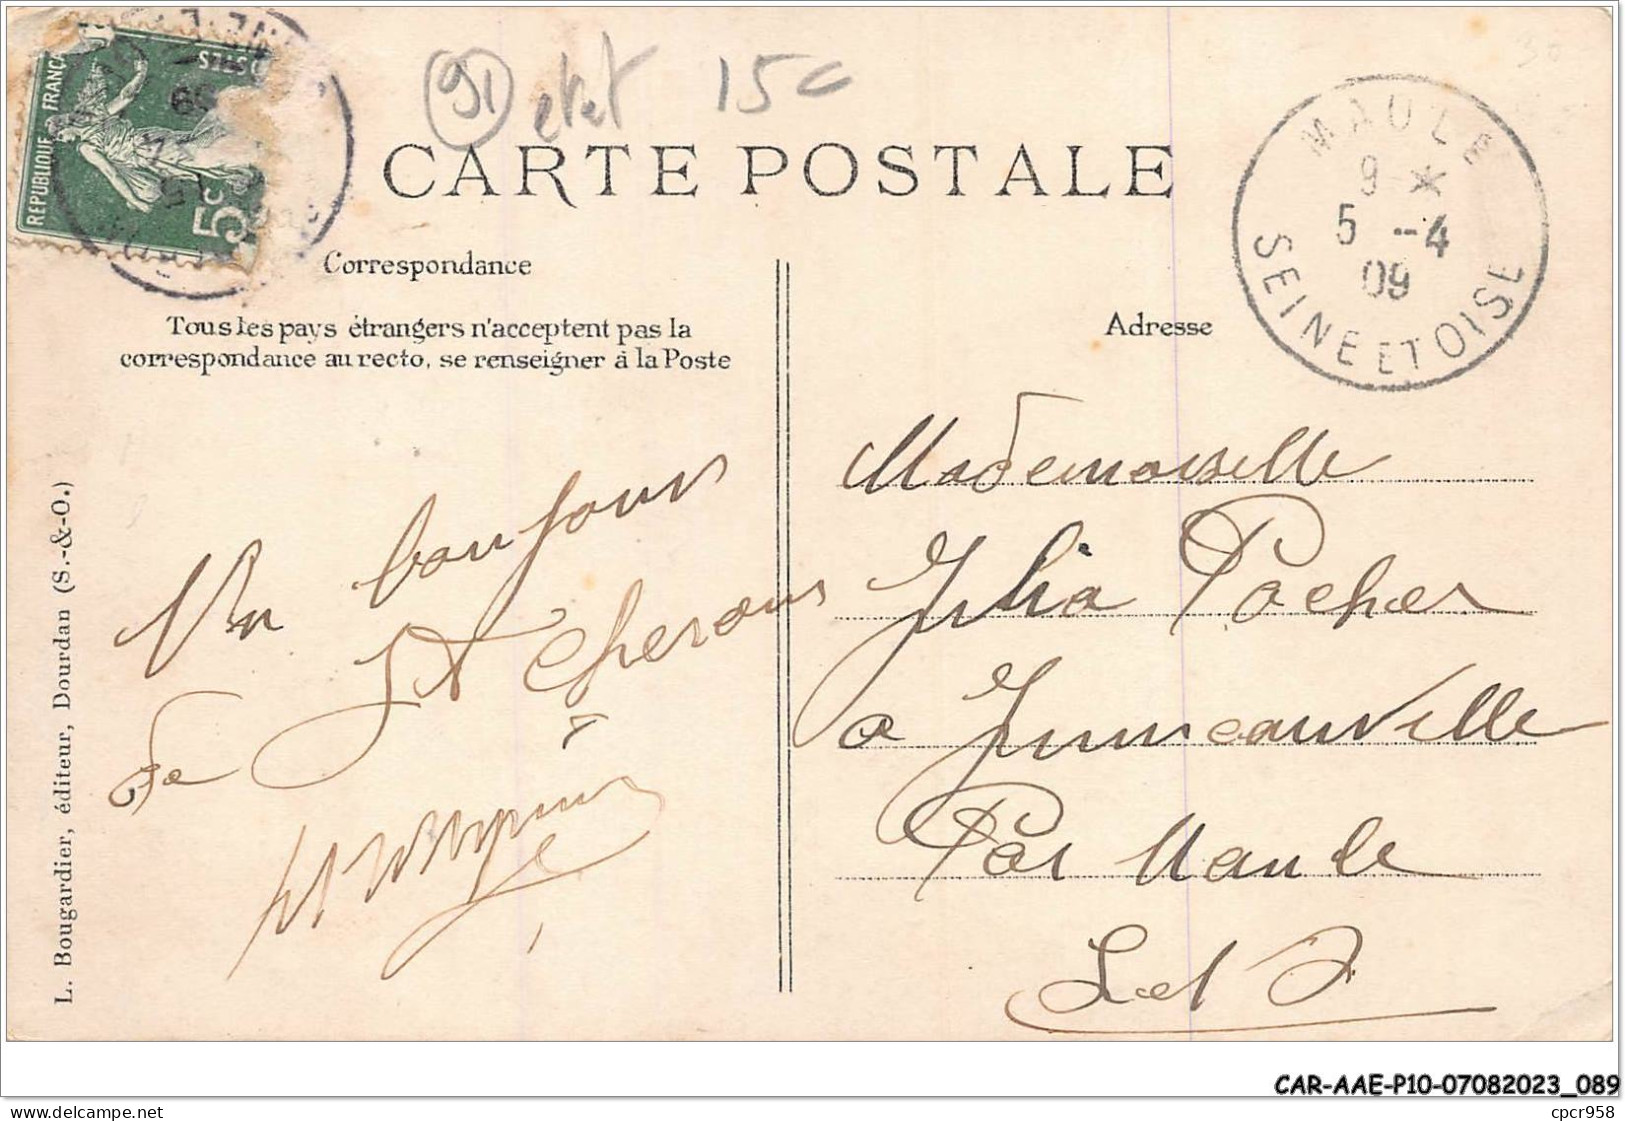 REPUBLIQUE FRANÇA
POSTES
5c
91 etat 15c
CARTE POSTALE
MAULE
9 *
5 -4
09
SEINE ET OISE
Correspondance
Tous les pays étrangers n'acceptent pas la
correspondance au recto, se renseigner à la Poste
Adresse
Un bonjour
de St Cheron
Mademoiselle
Julia Pocher
a Jumeauville
Par Maule
S et O
L. Bougardier, éditeur, Dourdan (S.-&-O.)
CAR-AAE-P10-07082023_089
delcampe.net
cpcr958